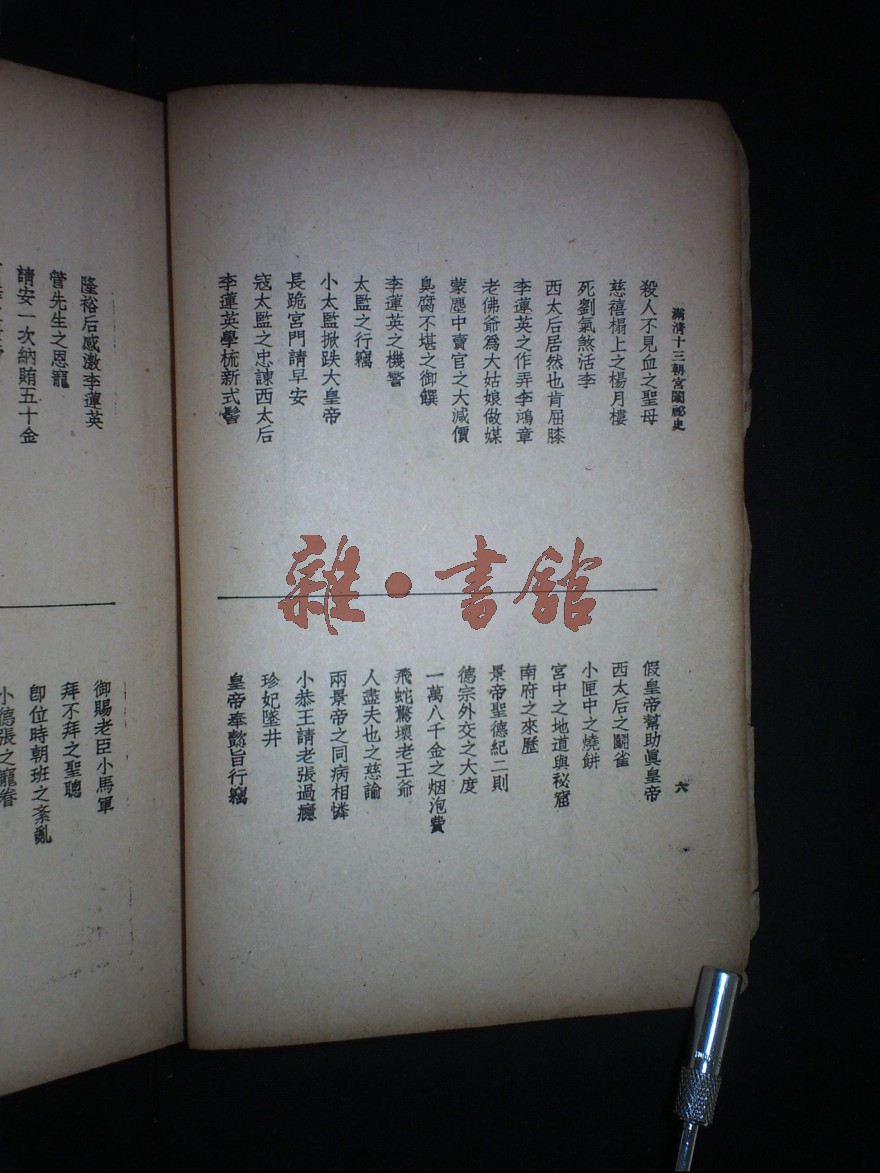 滿清十三朝宮闈祕史
殺人不見血之聖母
慈禧榻上之楊月樓
死劉氣煞活李
西太后居然也肯屈膝
李蓮英之作弄李鴻章
老佛爺爲大姑娘做媒
蒙塵中賣官之大減價
臭腐不堪之御饌
李蓮英之機警
太監之行竊
小太監掀跌大皇帝
長跪宮門請早安
寇太監之忠諫西太后
李蓮英學梳新式髻
六
假皇帝幫助眞皇帝
西太后之鬭雀
小匣中之燒餅
宮中之地道與秘窟
南府之來歷
景帝聖德紀二則
德宗外交之大度
一萬八千金之烟泡費
飛蛇驚壞老王爺
人盡夫也之慈諭
兩景帝之同病相憐
小恭王請老張過癮
珍妃墜井
皇帝奉懿旨行竊
雜·書館
隆裕后感激李蓮英
管先生之恩寵
請安一次納賄五十金
御賜老臣小馬軍
拜不拜之聖聰
卽位時朝班之紊亂
小德張之寵眷